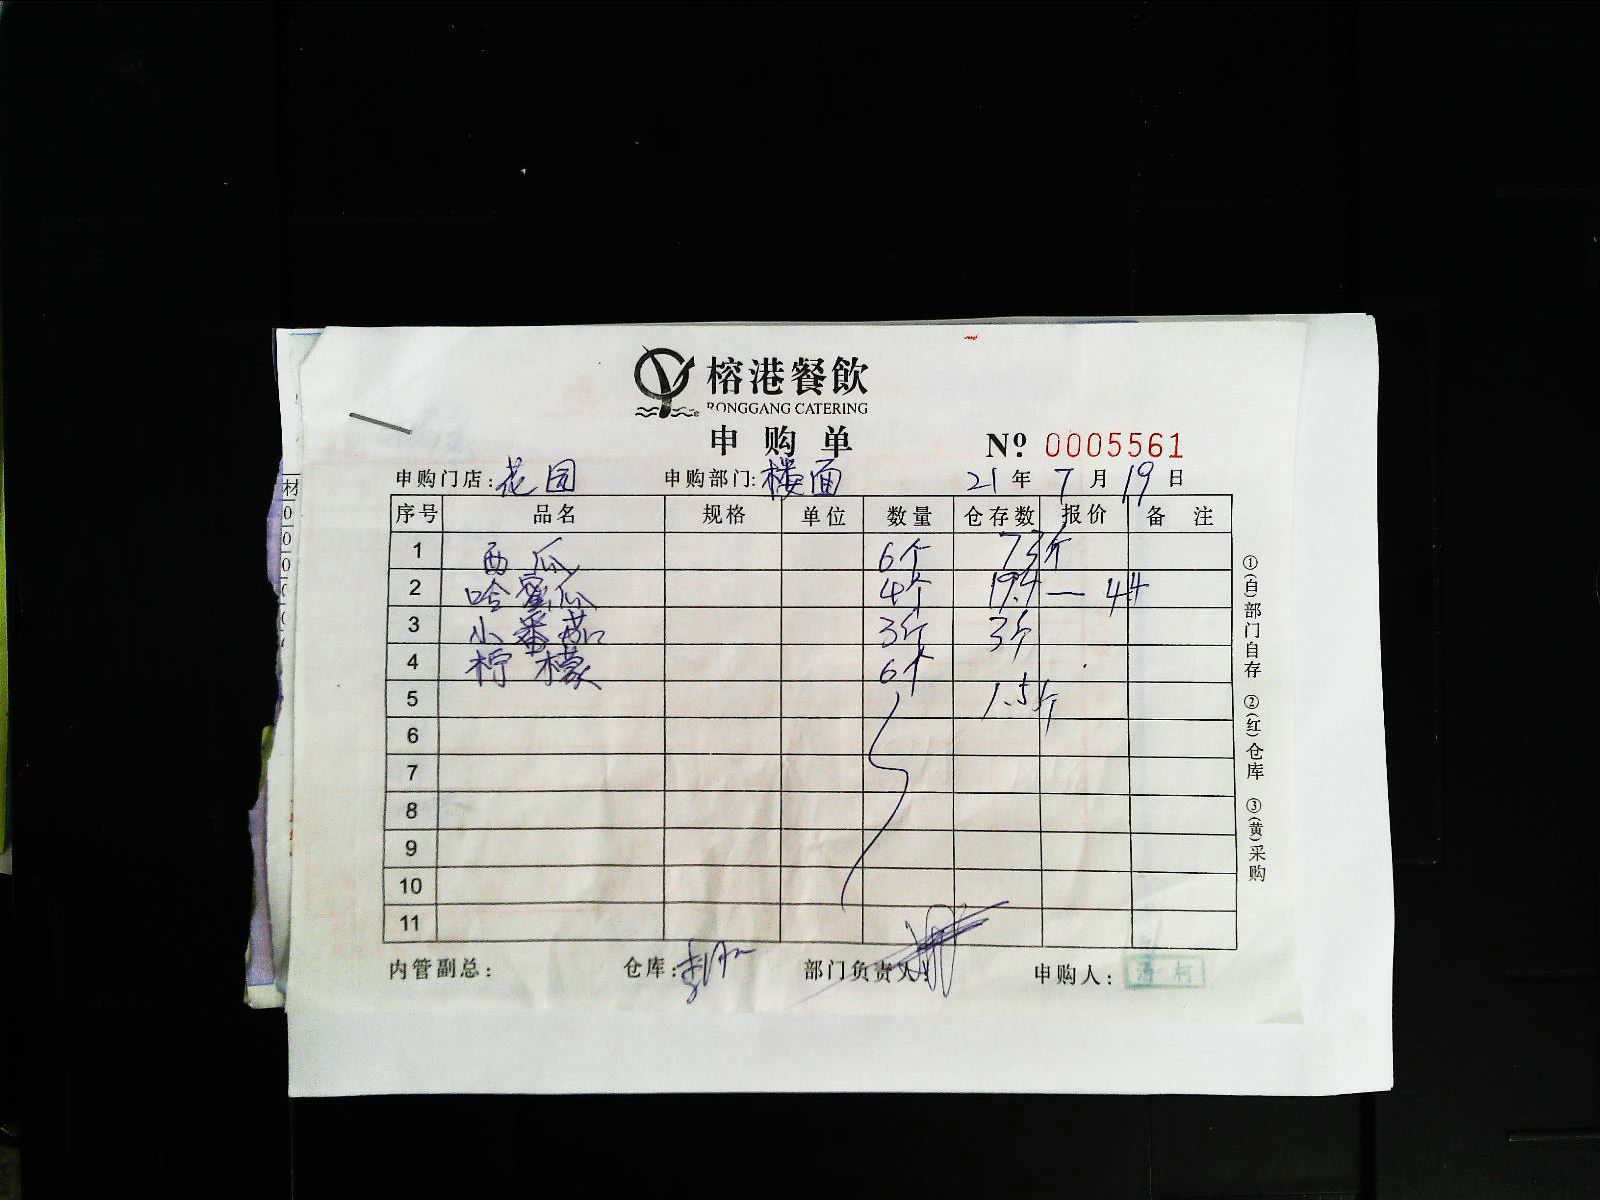 榕港餐飲
RONGGANG CATERING
申购单
Nº 0005561
申购门店:花园 申购部门:楼面 21年7月19日
序号 品名 规格 单位 数量 仓存数 报价 备注
1 西瓜 6个 73斤
2 哈蜜瓜 4个 19.4 — 4.4
3 小番茄 3斤 3斤
4 柠檬 6个
5 1.5斤
6
7
8
9
10
11
内管副总: 仓库: 部门负责人: 申购人:
①(白)部门自存 ②(红)仓库 ③(黄)采购
材
0
0
0
0
0